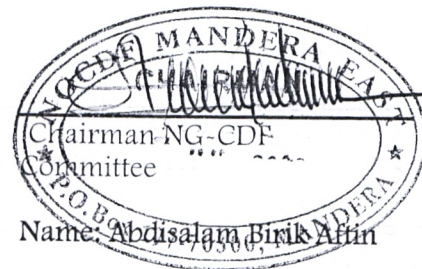 NGCDF MANDERA EAST
Chairman NG-CDF
Committee
P.O. Box 70300, MANDERA
Name: Abdisalam Birik Aftin